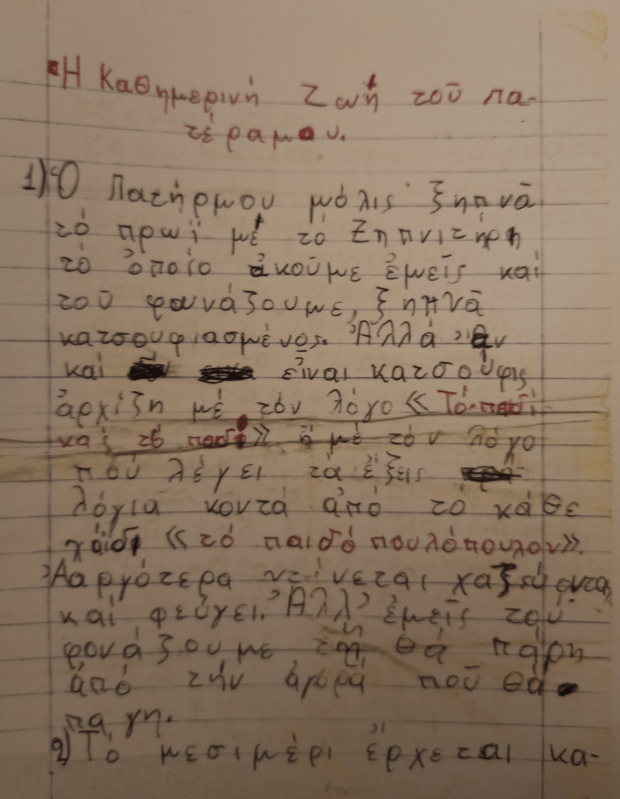 Ἡ Καθημερινή Ζωή τοῦ πα-
τέραμου.
1) Ὁ Πατήρμου μόλις ξηπνᾶ
τό πρωϊ μέ τό Ξηπνιτήρη
τό ὁποίο ἀκούμε ἐμεῖς καί
τοῦ φωνάζουμε, ξηπνᾶ
κατσουφιασμένος. Ἀλλά ἄν
καί εἶναι κατσούφις
ἀρχίζη μέ τόν λόγο « Τό παιδί
καί τό παιδί» ἤ μέ τόν λόγο
πού λέγει τά ἑξεῖς
λόγια κοντά ἀπό τό κάθε
χάϊδι «τό παιδόπουλόπουλον».
Ἀαργότερα ντίνεται χαζεύοντας
καί φεύγει. Ἀλλ' ἐμεῖς τού
φονάζουμε τῆ θά πάρη
ἀπό τήν ἀγορά ποῦ θά
παγη.
2) Τό μεσιμέρι ἔρχεται κα-